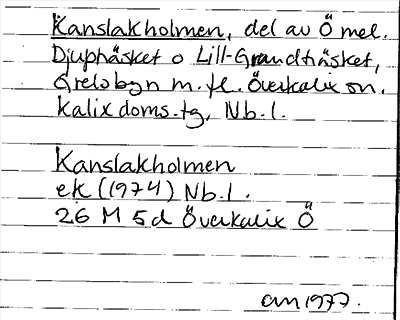 Kanslakholmen, del av Ö mel.
Djupträsket o Lill-Grandträsket,
Grelsbyn m. fl. Överkalix sn.
Kalix doms.tg, Nb.l.
Kanslakholmen
ek (1974) Nb.l.
26 M 5d Överkalix Ö
am 1977.